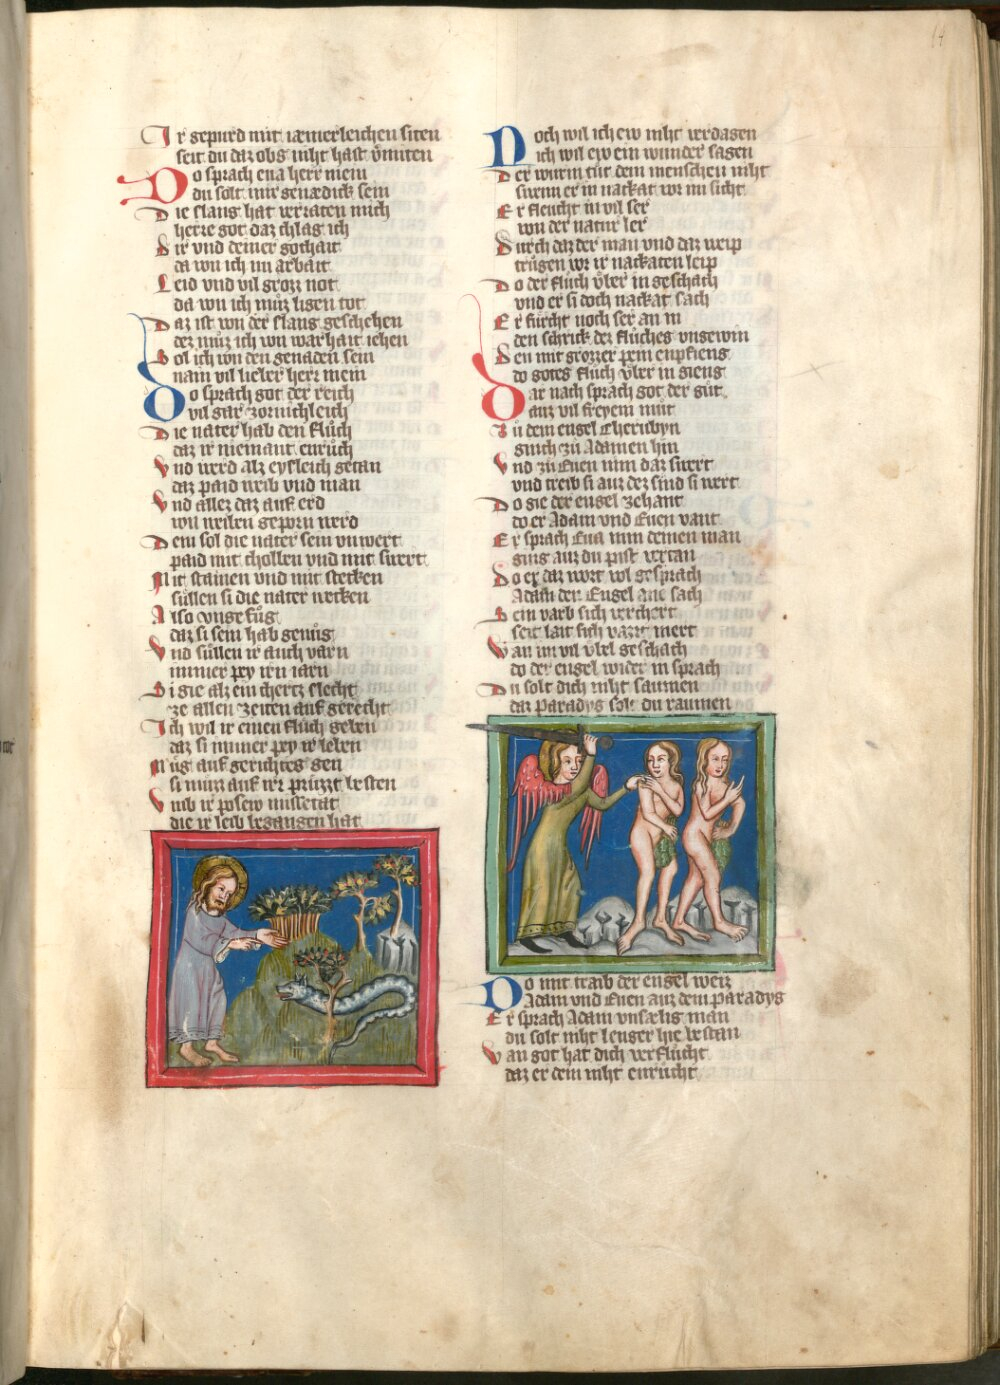 14
Ir gepurd mit iæmerleichen siten
seit du daz obs niht hast v̊miten
Do sprach eua herr mein
du solt mir genædich sein
Die slang hat verraten mich
herre got daz chlag ich
Dir vnd deiner gothait
da von ich nu arbait
Leid vnd vil grozz not
da von ich můz ligen tot
Daz ist von der slang geschehen
dez můz ich von warhait iehen
Sol ich von den genaden sein
nam vil lieber herr mein
Do sprach got der reich
vil gar zornichleich
Die nater hab den flůch
daz ir niemant enrůch
Vnd werd alz eysleich getan
daz paid weib vnd man
Vnd allez daz auf erd
von weiben geporn werd
Dem sol die nater sein vnwert
paid mit chollen vnd mit swert
Mit stainen vnd mit stecken
sullen si die nater wecken
Also vngefůg
daz si sein hab genůg
Vnd sullen ir auch varn
immer pey irn iarn
Si gie alz ein chertz slecht
ze allen zeiten auf gerecht
Ich wil ir einen flůch geben
daz si nimmer pey ir leben
Můg auf gerichtes gen
si můzz auf irr průzzt besten
Vmb ir posew missetat
die ir leib begangen hat
Noch wil ich ew niht verdagen
ich wil ew ein wunder sagen
Der wurm tut dem menschen niht
swenn er in nackat vor im siht
Er fleucht in vil ser
von der natur ler
Durch daz der man vnd daz weip
trůgen vor ir nackaten leip
Do der flůch v̊ber in geschach
vnd er si doch nackat sach
Er furcht noch ser an in
den schrick der flůches vngewin
Den mit grozzer pein enpfieng
do gotes flůch v̊ber in gieng
Dar nach sprach got der gůt
auz vil freyem můt
Zu dem engel Cherubyn
ginch zů Adamen hin
Vnd zů Euen nim daz swert
vnd treib si auz dez sind si wert
Do gie der engel zehant
do er Adam vnd Euen vant
Er sprach Eua nim deinen man
ging auz du pist vertan
Do er daz wort vol gesprach
Adam der Engel ane sach
Sein varb sich verchert
seit lait sich vazzt mert
Wan im vil v̊bel geschach
do der engel wider in sprach
Du solt dich niht saumen
daz paradys solt du raumen
Do mit traib der engel weiz
Adam vnd Euen auz dem paradys
Er sprach Adam vnsælig man
du solt niht lenger hie bestan
Wan got hat dich verflůcht
daz er dein niht enrůcht